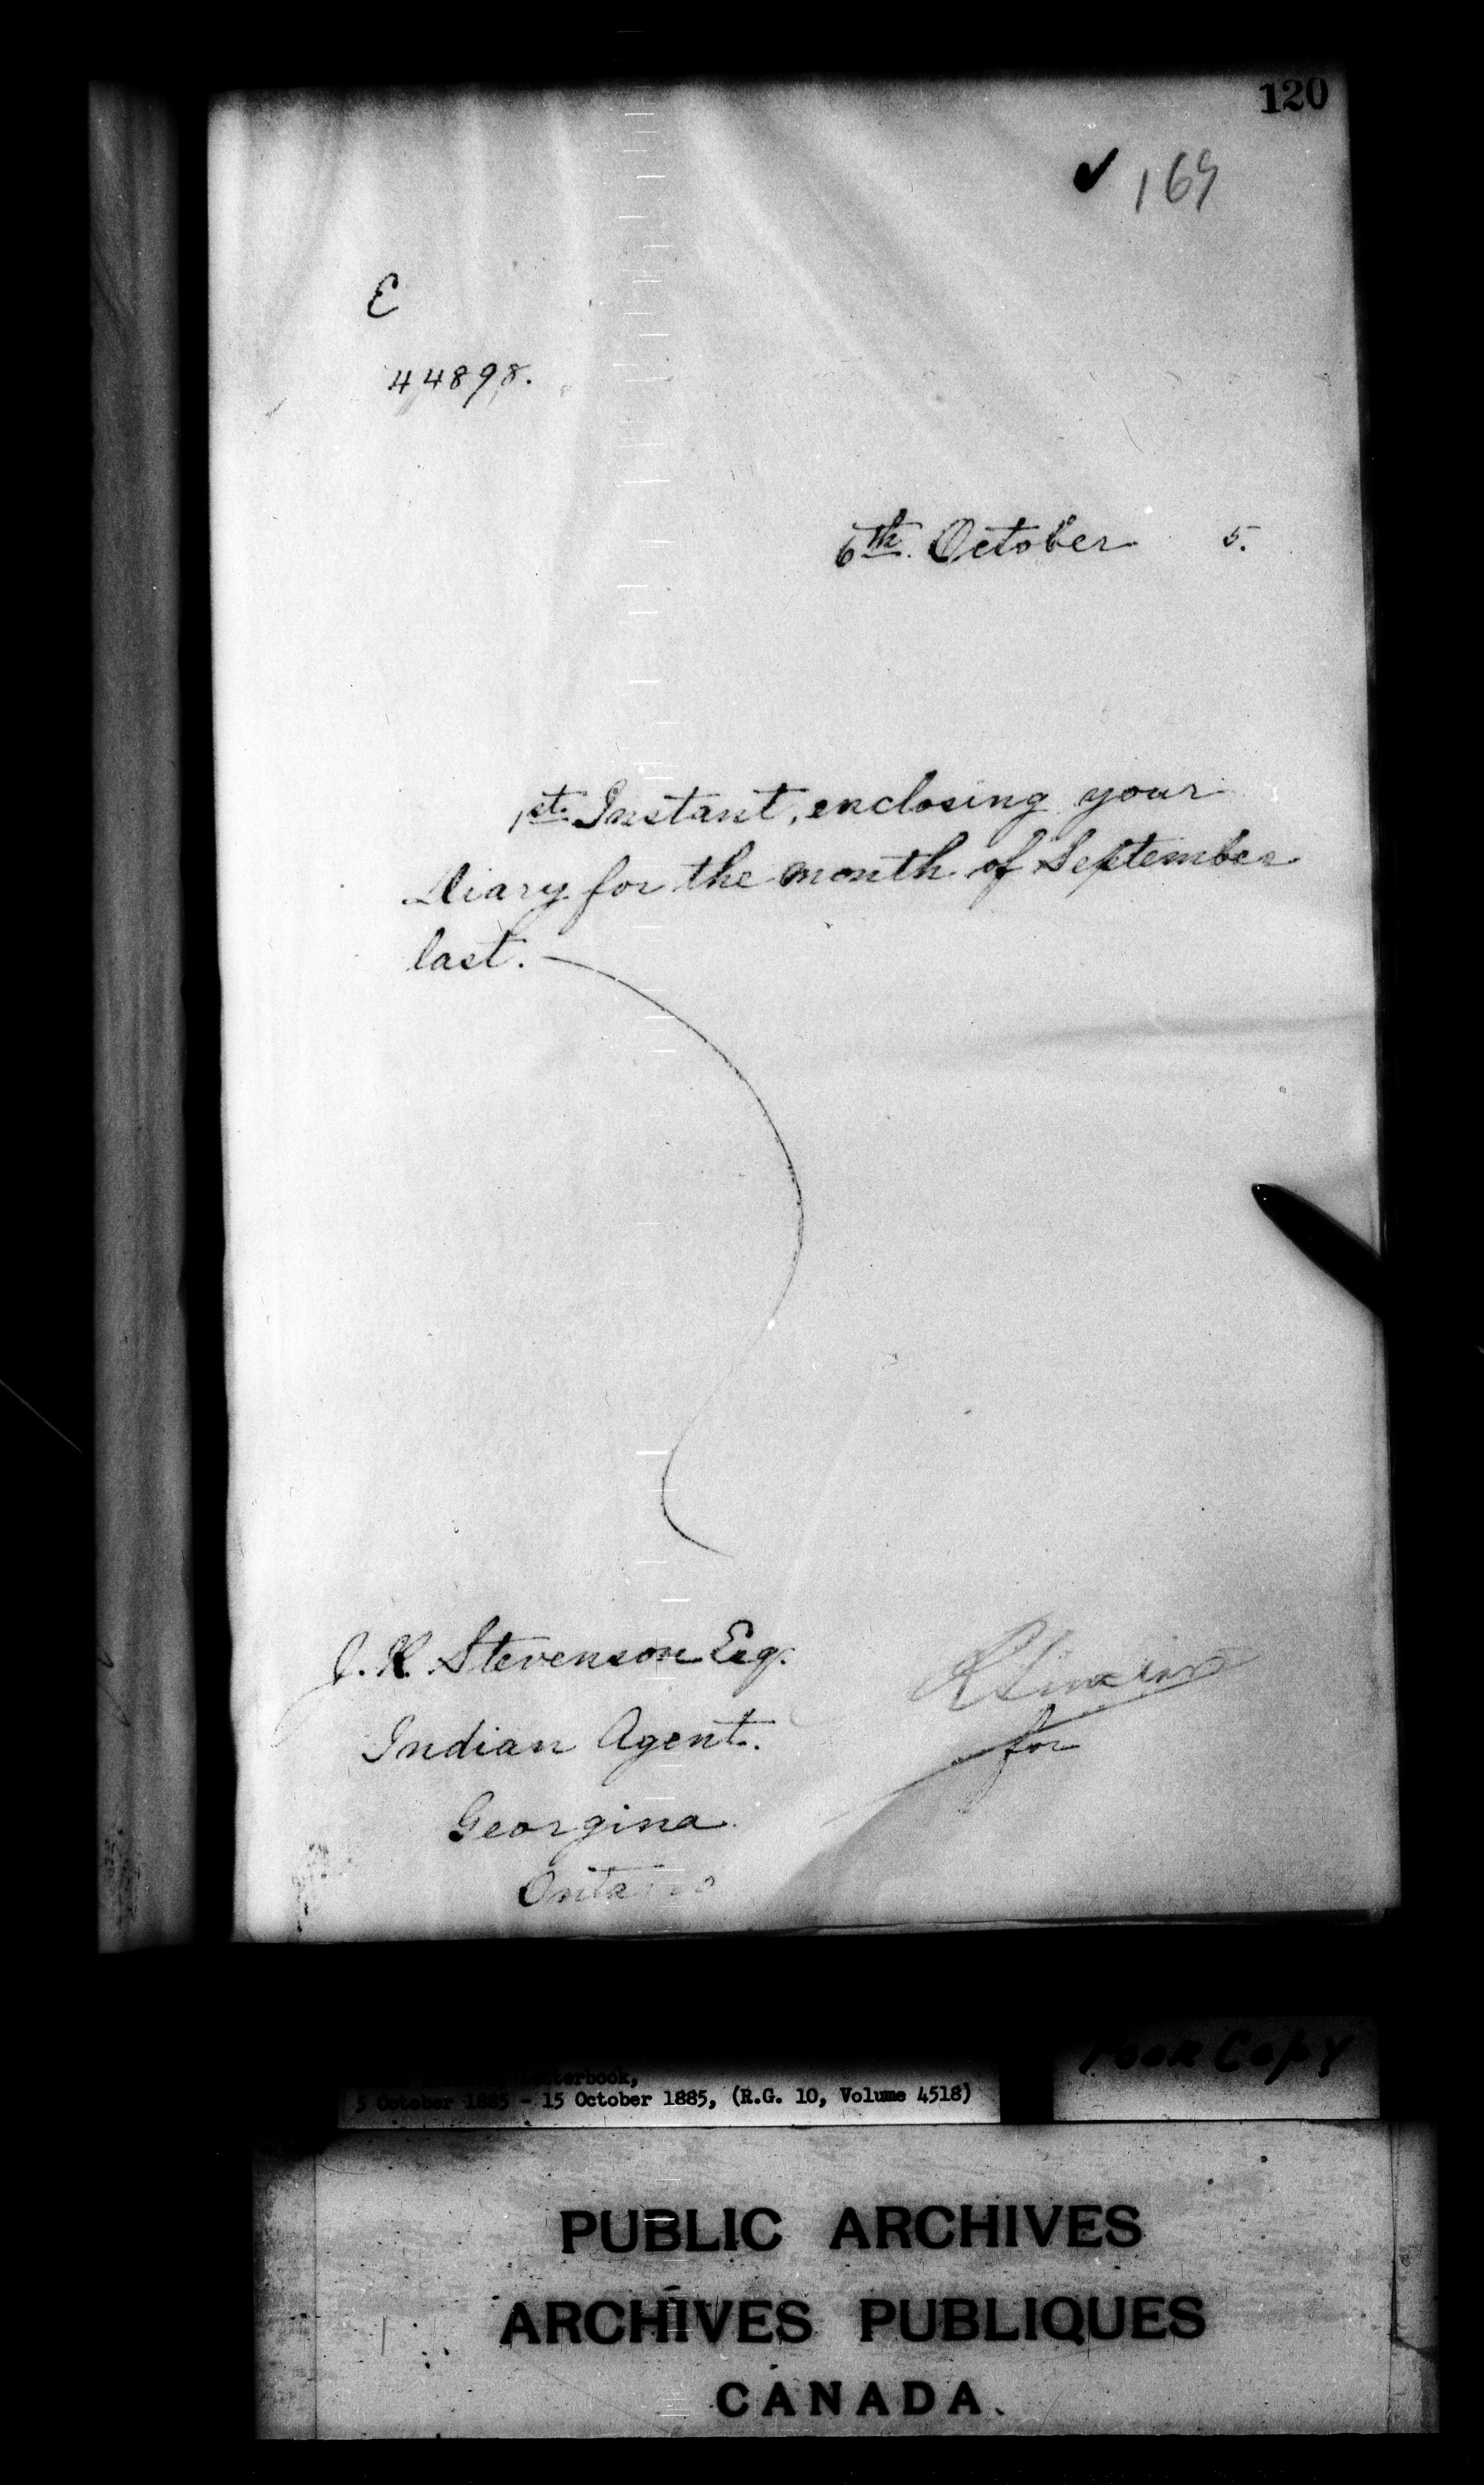 120
✓ 169
E
44898.
6th. October 5.
1st. Instant, enclosing your
Diary for the month of September
last.
J. R. Stevenson Esq.
Indian Agent.
Georgina
Ontario
R Sinclair
for
Letterbook,
5 October 1885 - 15 October 1885, (R.G. 10, Volume 4518)
Poor Copy
PUBLIC ARCHIVES
ARCHIVES PUBLIQUES
CANADA